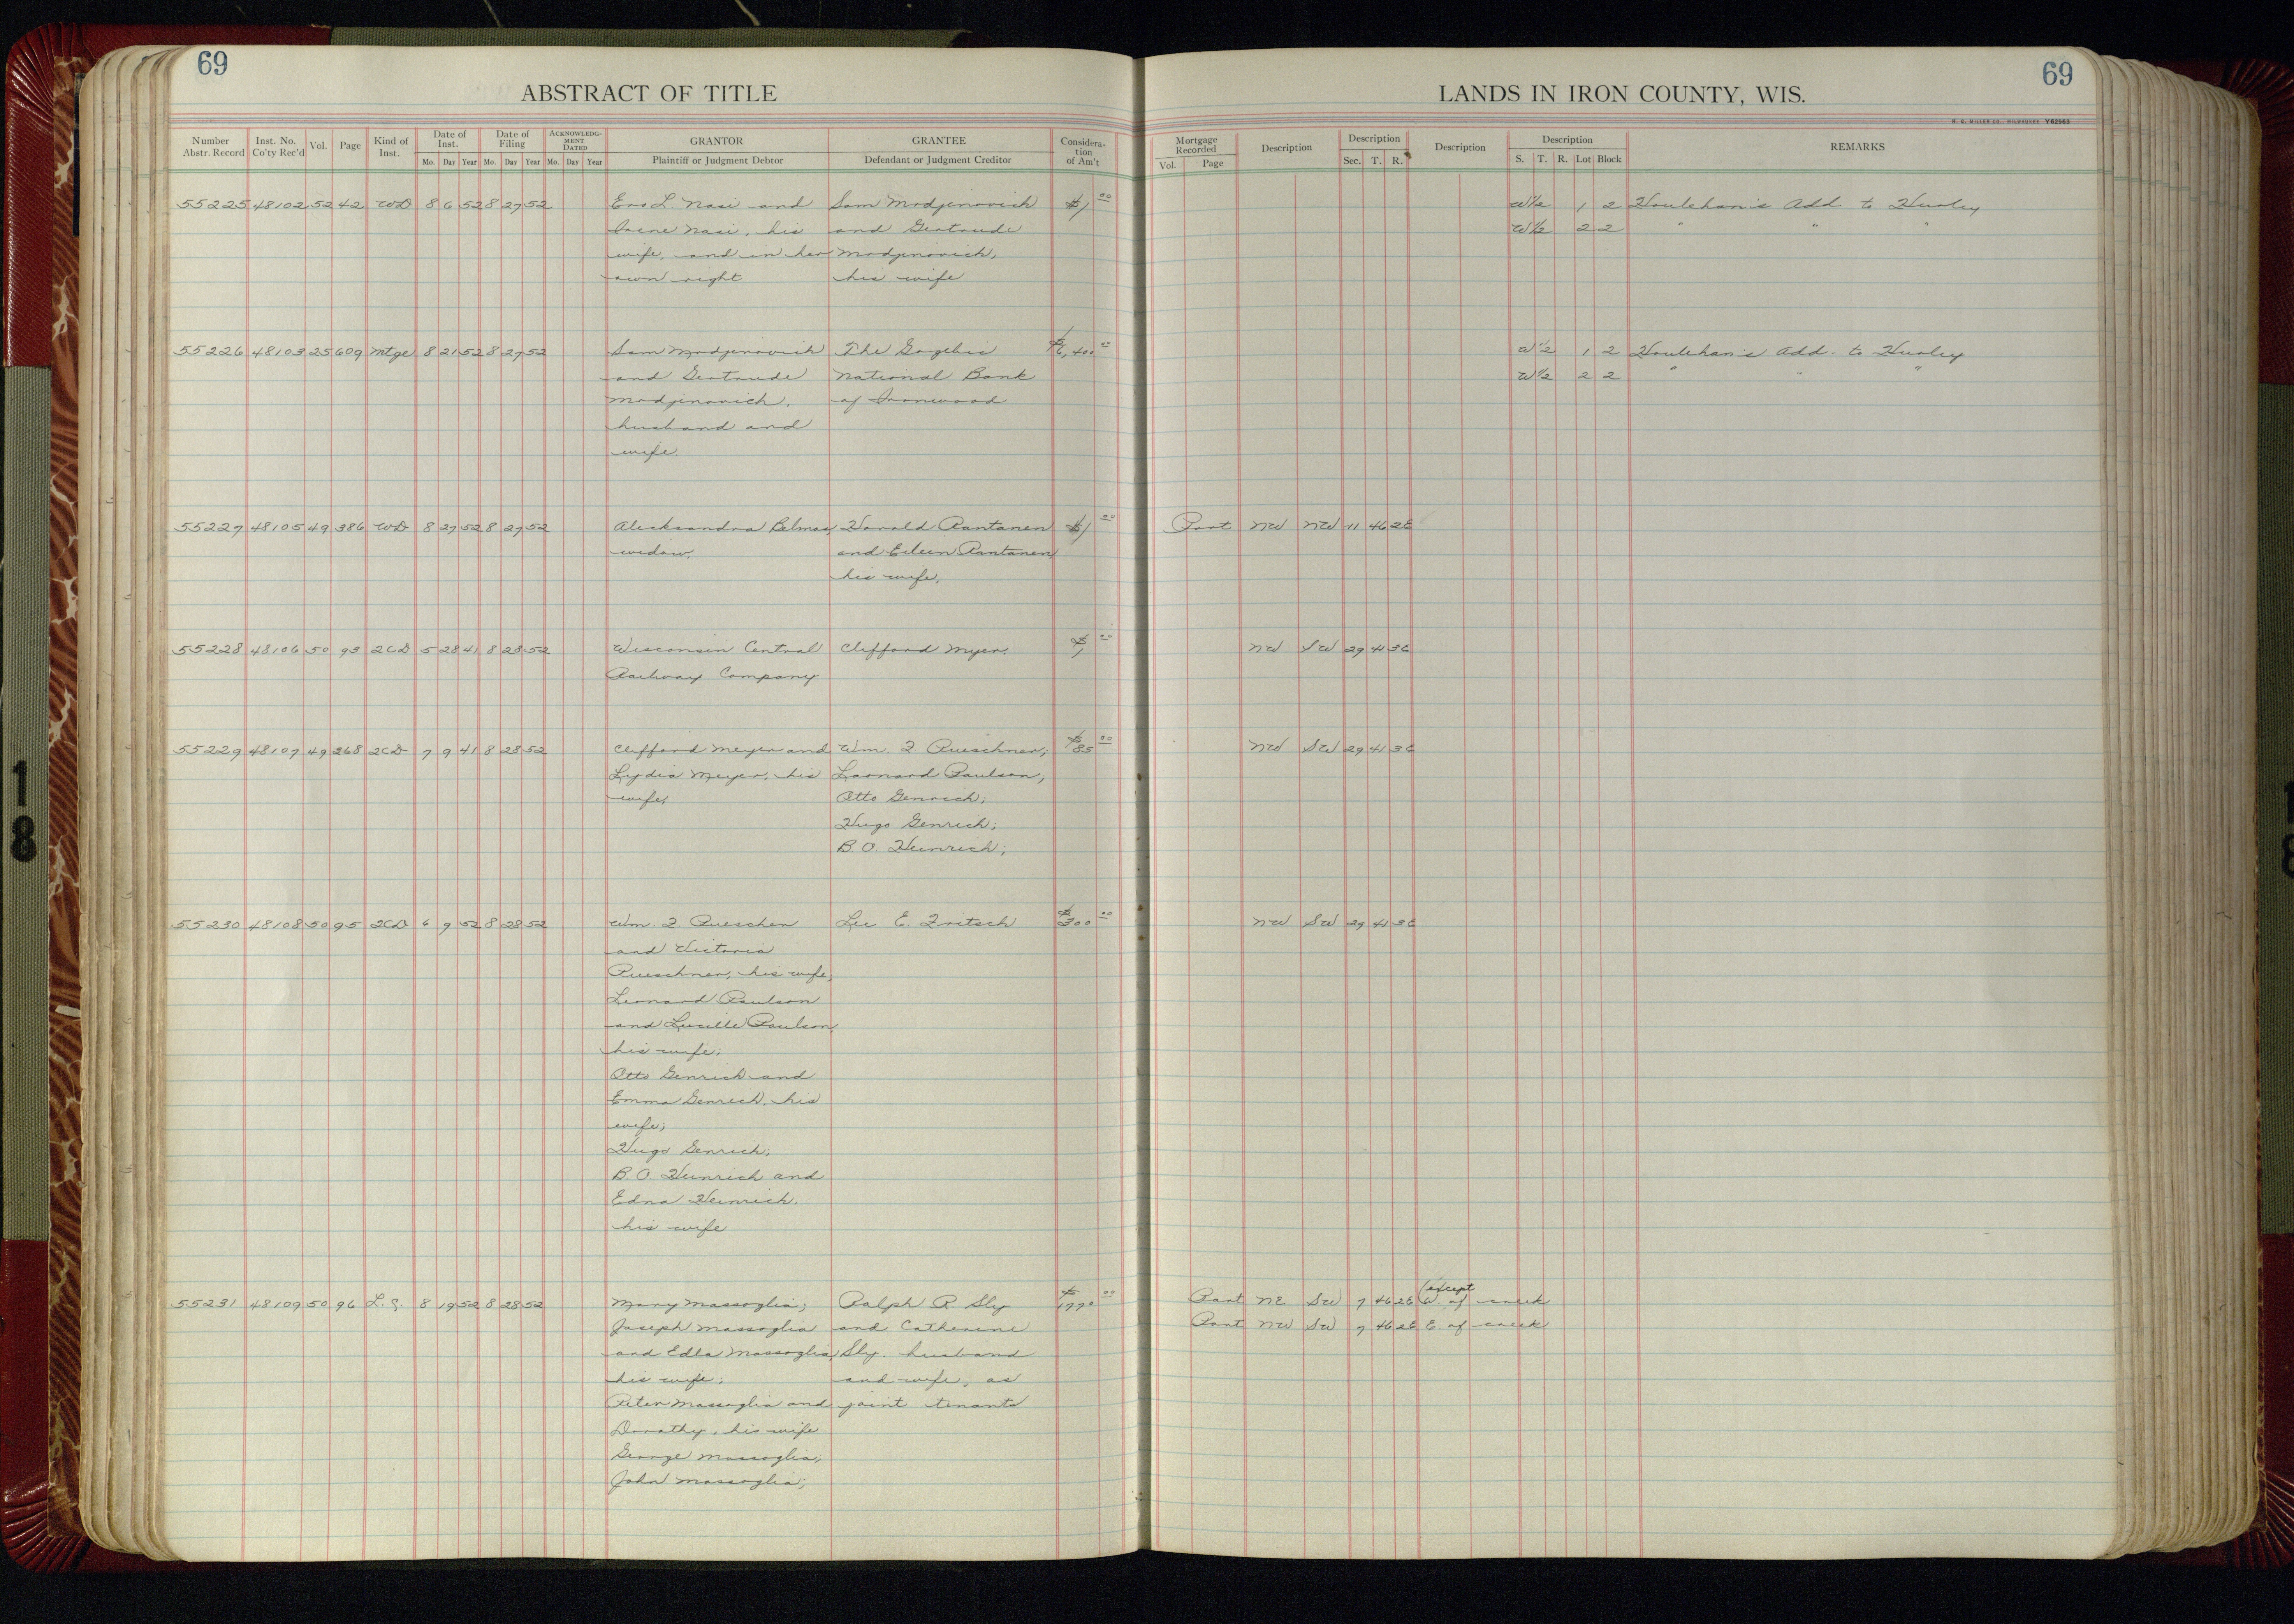 69
ABSTRACT OF TITLE
Number Abstr. Record Inst. No. Co'ty Rec'd Vol. Page Kind of Inst. Date of Inst. Mo. Day Year Date of Filing Mo. Day Year ACKNOWLEDG-MENT DATED Mo. Day Year GRANTOR Plaintiff or Judgment Debtor GRANTEE Defendant or Judgment Creditor Considera-tion of Am't
55225 48102 52 42 WD 8 6 52 8 27 52 L. Nasi and Sam Modjinovich $1 00
Irene Nasi, his and Gertrude
wife, and in her Modjinovich,
own right his wife
55226 48103 25 609 Mtge 8 21 52 8 27 52 Sam Modjinovich The Gogebic $6,400 00
and Gertrude National Bank
Modjinovich, of Ironwood
husband and
wife.
55227 48105 49 386 WD 8 27 52 8 27 52 Alicksandra Belmas, Harold Rantanen $1 00
widow, and Eileen Rantanen
his wife,
55228 48106 50 93 2CD 5 28 41 8 28 52 Wisconsin Central Clifford Myer. $1 00
Railway Company
55229 48107 49 268 2CD 7 9 41 8 28 52 Clifford Meyer and Wm. F. Pueschner; $85 00
Lydia Meyer, his Leonard Paulson;
wife, Otto Genrich;
Hugo Genrich;
B. O. Heinrich;
55230 48108 50 95 2CD 6 9 52 8 28 52 Wm. F. Pueschen Lee E. Fritsch $300 00
and Victoria
Pueschner, his wife;
Leonard Paulson
and Lucille Paulson,
his wife;
Otto Genrich and
Emma Genrich, his
wife;
Hugo Genrich;
B. O. Heinrich and
Edna Heinrich,
his wife
55231 48109 50 96 L.C. 8 19 52 8 28 52 Mary Massoglia; Ralph R. Sly $1770 00
Joseph Massoglia and Catherine
and Edla Massoglia, Sly, husband
his wife; and wife, as
Peter Massoglia and joint tenants
Dorothy, his wife
George Massoglia;
John Massoglia;
69
LANDS IN IRON COUNTY, WIS.
H. C. MILLER CO., MILWAUKEE Y82963
Mortgage Recorded Vol. Page Description Description Sec. T. R. Description Description S. T. R. Lot Block REMARKS
W 1/2 1 2 Houlehan's Add to Hurley
W 1/2 2 2 " " "
W 1/2 1 2 Houlehan's Add. to Hurley
W 1/2 2 2 " " "
Part NW NW 11 46 2E
NW SW 29 41 3E
NW SW 29 41 3E
NW SW 29 41 3E
(except
Part NE SW 7 46 2E W. of creek
Part NW SW 7 46 2E E. of creek
18